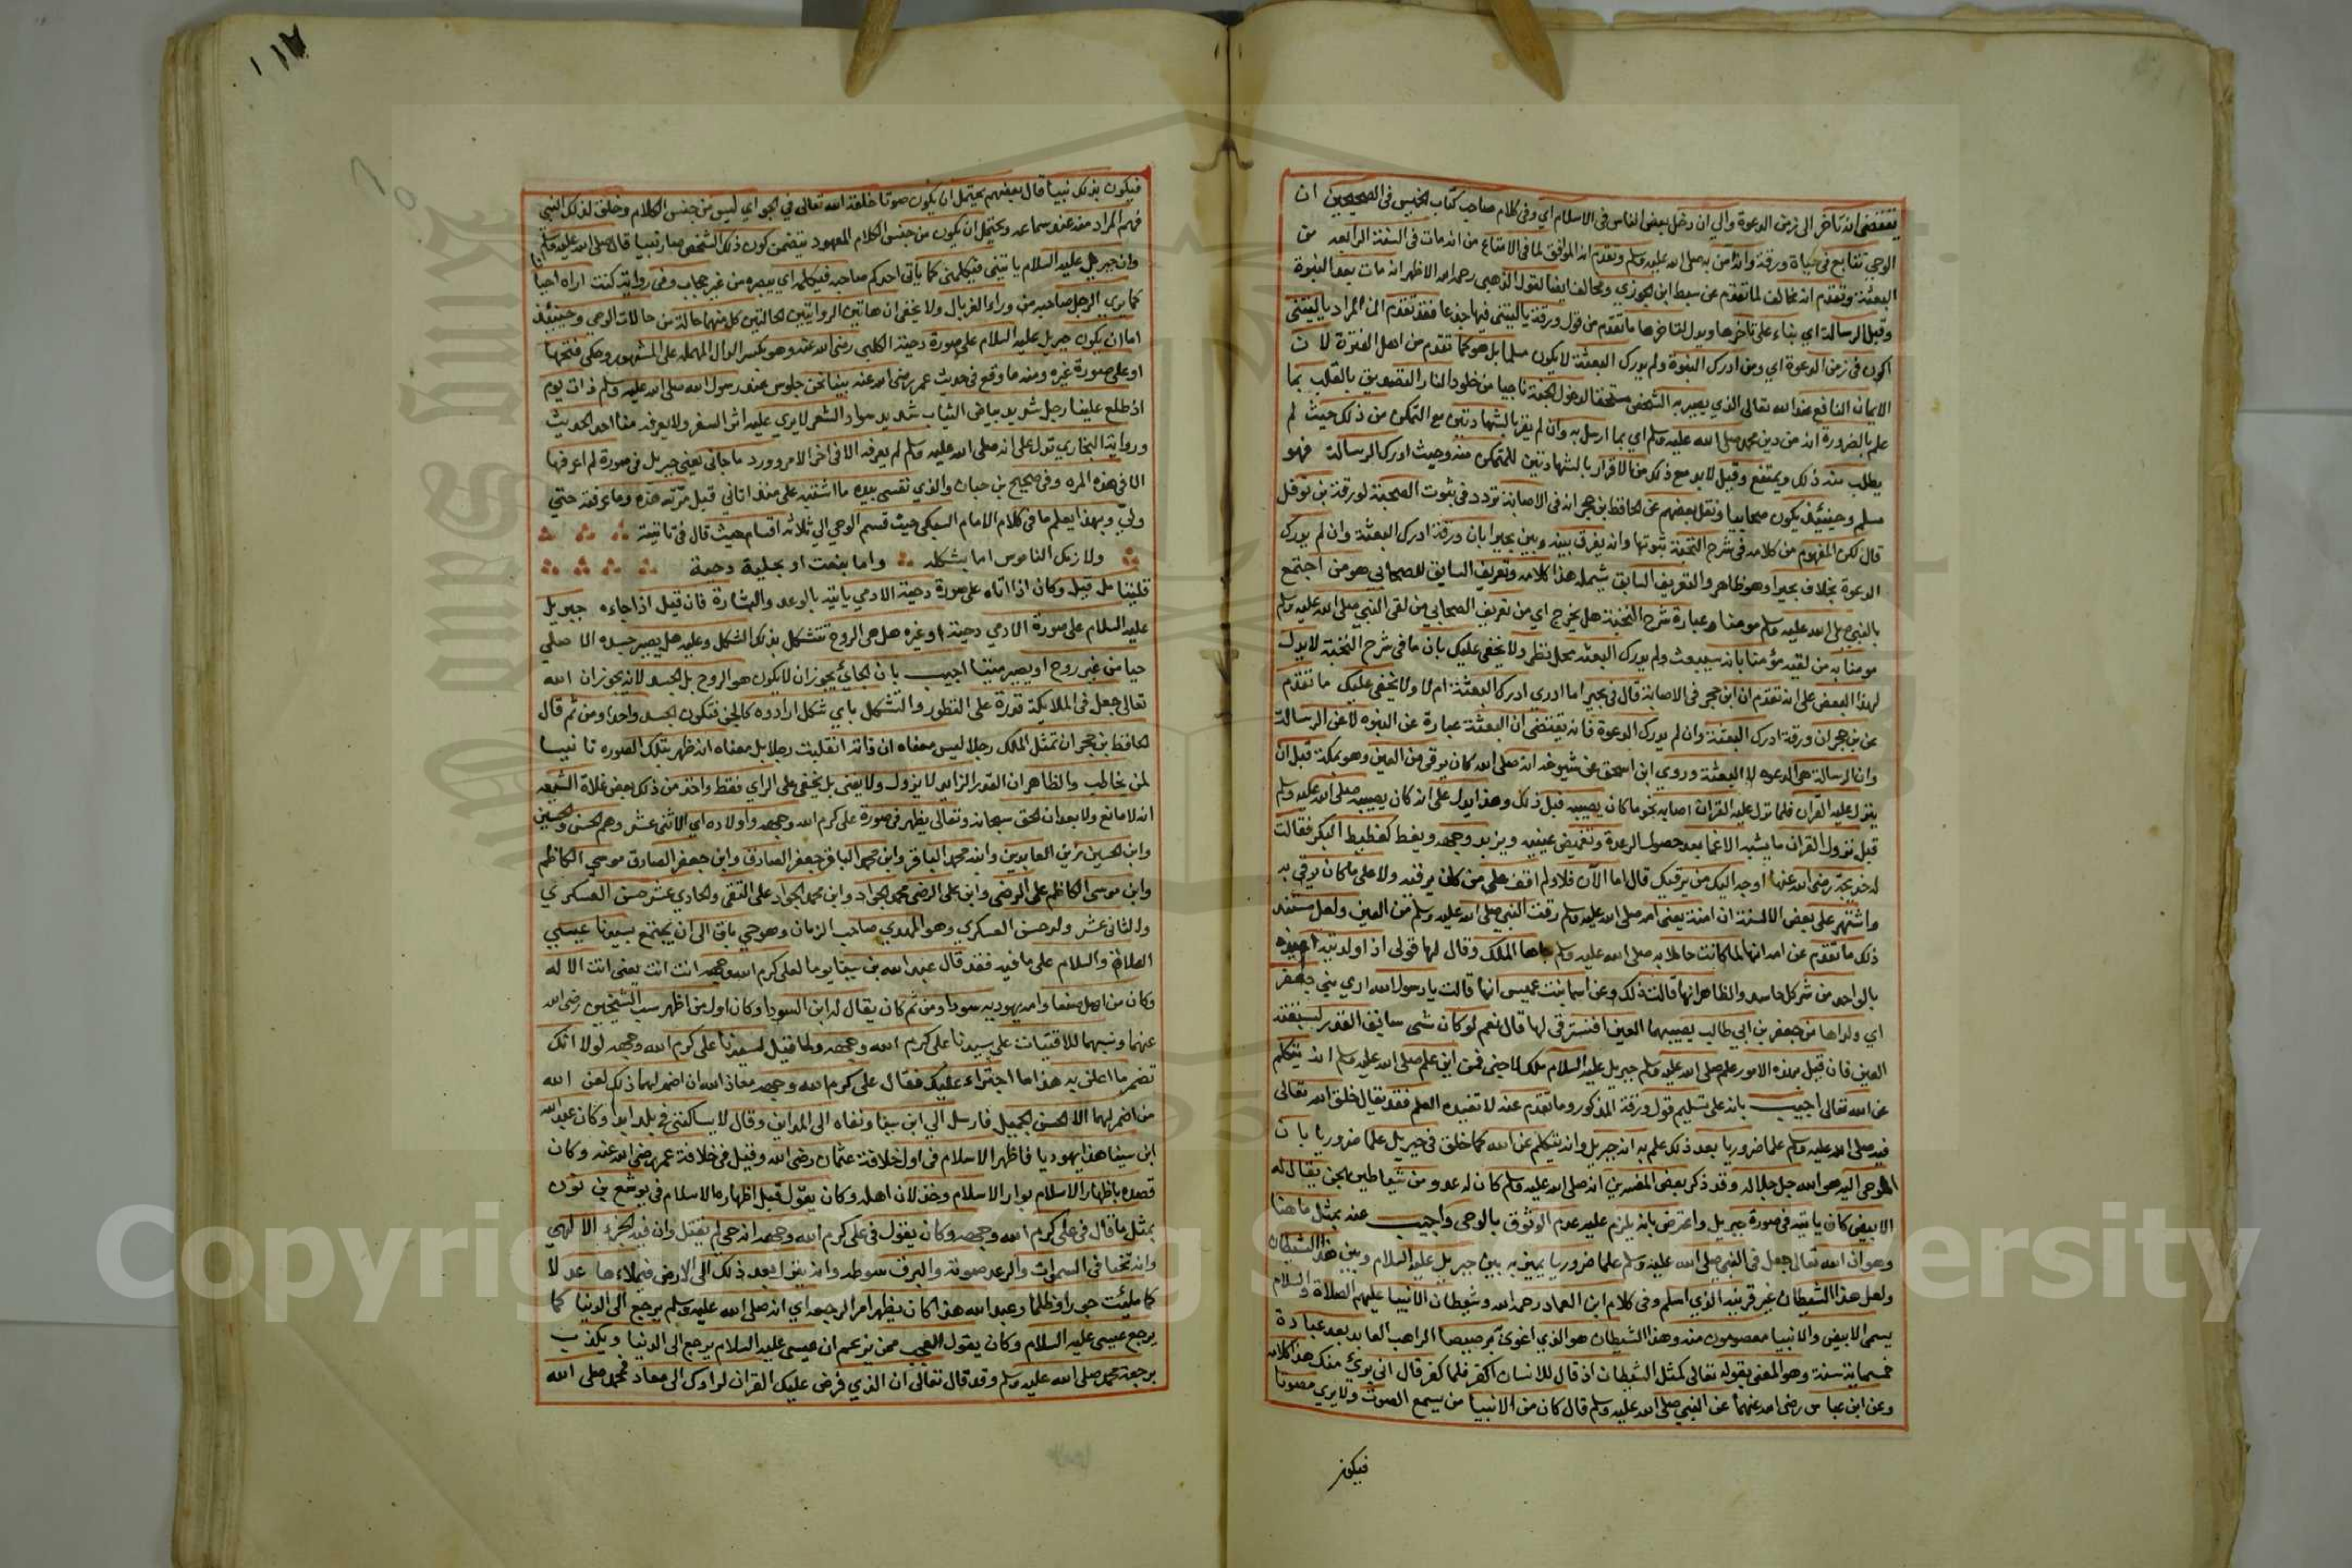 يقتضى انه تاخر الى زمن الدعوة والى ان دخل بعض الناس فى الاسلام اى وفى كلام صاحب كتاب الخميس فى الصحيحين ان
الوحي تتابع فى حياة ورقة وانه آمن به صلى الله عليه وسلم وتقدم انه الموافق لما فى الامتاع من انه مات فى السنة الرابعة من
البعثة وتقدم انه مخالف لما تقدم عن سبط ابن الجوزي ومخالف ايضا لقول الذهبى رحمه الله الاظهر انه مات بعد النبوة
وقبل الرسالة اي بناء على تاخرها ويدل لتاخرها ما تقدم من قول ورقة ياليتنى فيها جذعا فقد تقدم ان المراد ياليتنى
اكون فى زمن الدعوة اي ومن ادرك النبوة ولم يدرك البعثة لا يكون مسلما بل هو كما تقدم من اهل الفترة لان
الايمان النافع عند الله تعالى الذي يصير به الشخص مستحقا لدخول الجنة ناجيا من خلود النار التصديق بالقلب بما
علم بالضرورة انه من دين محمد صلى الله عليه وسلم اي بما ارسل به وان لم يقر بالشهادتين مع التمكن من ذلك حيث لم
يطلب منه ذلك ويمتنع وقيل لابد مع ذلك من الاقرار بالشهادتين للمتمكن منه وحيث ادرك الرسالة فهو
مسلم وحينئذ يكون صحابيا ونقل بعضهم عن الحافظ بن حجر انه فى الاصابة تردد فى ثبوت الصحبة لورقة بن نوفل
قال لكن المفهوم من كلامه فى شرح النخبة ثبوتها وانه يفرق بينه وبين بحيرا بان ورقة ادرك البعثة وان لم يدرك
الدعوة بخلاف بحيرا وهو ظاهر والتعريف السابق يشمله هذا كلامه وتعريف السابق للصحابى هو من اجتمع
بالنبى صلى الله عليه وسلم مومنا وعبارة شرح النخبة هل يخرج اي من تعريف الصحابى من لقى النبى صلى الله عليه وسلم
مومنا به من لقيه مؤمنا بانه سيبعث ولم يدرك البعثه محل نظر ولا يخفى عليك بان ما فى شرح النخبة لا يدل
لهذا البعض على انه تقدم ان ابن حجر فى الاصابة قال فى بحيرا ما ادري ادرك البعثة ام لا ولا يخفى عليك ما تقدم
عن بن حجر ان ورقة ادرك البعثة وان لم يدرك الدعوة فانه يقتضى ان البعثة عبارة عن النبوه لا عن الرسالة
وان الرسالة هى الدعوه لا البعثة وروى ابن اسحق عن شيوخه انه صلى الله كان يرقى من العين وهو بمكة قبل ان
ينزل عليه القرآن فلما نزل عليه القران اصابه نحو ما كان يصيبه قبل ذلك وهذا يدل على انه كان يصيبه صلى الله عليه وسلم
قبل نزول القران ما يشبه الاغما بعد حصول الرعدة وتغميض عينيه ويزبد وجهه ويغط كغطيط البكر فقالت
له خديجة رضى الله عنها اوجه اليك من يرقيك قال اما الآن فلا ولم اقف على من كان يرقيه ولا على ما كان يرقى به
واشتهر على بعض الالسنة ان امنة يعنى امه صلى الله عليه وسلم رقت النبى صلى الله عليه وسلم من العين ولعل مستند
ذلك ما تقدم عن امه انها لما كانت حاملا به صلى الله عليه وسلم جاها الملك وقال لها قولى اذا ولدتيه اعيذه
بالواحد من شر كل حاسد والظاهر انها قالت ذلك وعن اسما بنت عميس انها قالت يا رسول الله ان بنى جعفر
اي ولداها من جعفر بن ابى طالب يصيبهما العين افنسترقى لها قال نعم لو كان شى سابق القدر لسبقته
العين فان قيل بهذه الامور علم صلى الله عليه وسلم جبريل عليه السلام ملك لا جنى فمن اين علم صلى الله عليه وسلم انه يتكلم
عن الله تعالى اجيب بانه على تسليم قول ورقة المذكور وما تقدم عنه لا تفيده العلم فقد يقال خلق الله تعالى
فيه صلى الله عليه وسلم علما ضروريا بعد ذلك علم به انه جبريل وانه يتكلم عن الله كما خلق فى جبريل علما ضروريا بان
الموحى اليه هو الله جل جلاله وقد ذكر بعض المفسرين انه صلى الله عليه وسلم كان له عدو من شياطين الجن يقال له
الابيض كان ياتيه فى صورة جبريل واعترض بانه يلزم عليه عدم الوثوق بالوحى واجيب عنه بمثل ما هنا
وهو ان الله تعالى جعل فى النبى صلى الله عليه وسلم علما ضروريا يميز به بين جبريل عليه السلام وبين هذا الشيطان
ولعل هذا الشيطان غير قرينه الذي اسلم وفى كلام ابن العماد رحمه الله وشيطان الانبيا عليهم الصلاة والسلام
يسمى الابيض والانبيا معصومون منه وهذا الشيطان هو الذي اغوى برصيصا الراهب العابد بعد عبادة
خمسماية سنة وهو المعنى بقوله تعالى كمثل الشيطان اذ قال للانسان اكفر فلما كفر قال انى برئ منك هذا كلامه
وعن ابن عباس رضى الله عنهما عن النبى صلى الله عليه وسلم قال كان من الانبيا من يسمع الصوت ولا يرى مصوتا
فيكون
١١٧
فيكون بذلك نبيا قال بعضهم يحتمل ان يكون صوتا خلقه الله تعالى في الجو اي ليس من جنس الكلام وخلق لذلك النبى
فهم المراد منه عند سماعه ويحتمل ان يكون من جنس الكلام المعهود يتضمن كون ذلك الشخص صار نبيا قال صلى الله عليه وسلم
وان جبريل عليه السلام ياتينى فيكلمنى كما ياتى احدكم صاحبه فيكلمه اي يبصره من غير حجاب وفى رواية كنت اراه احيانا
كما يرى الرجل صاحبه من وراء الغربال ولا يخفى ان هاتين الروايتين لحالتين كل منهما حالة من حالات الوحي وحينئذ
اما ان يكون جبريل عليه السلام على صورة دحية الكلبى رضى الله عنه وهو بكسر الدال المهمله على المشهور وحكى فتحها
او على صورة غيره ومنه ما وقع فى حديث عمر رضى الله عنه بينا نحن جلوس عند رسول الله صلى الله عليه وسلم ذات يوم
اذ طلع علينا رجل شديد بياض الثياب شديد سواد الشعر لا يرى عليه اثر السفر ولا يعرفه منا احد الحديث
ورواية البخاري تدل على انه صلى الله عليه وسلم لم يعرفه الا فى اخر الامر وورد ما جانى يعنى جبريل فى صورة لم اعرفها
الا فى هذه المره وفى صحيح بن حبان والذي نفسى بيده ما اشتبه على منذ اتانى قبل مرته هذه وما عرفته حتى
ولى وبهذا يعلم ما فى كلام الامام السبكى حيث قسم الوحي الى ثلاثه اقسام حيث قال فى تائيته
ولازمك الناموس اما بشكله واما بنفث او بحلية دحية
قلبنا بل قيل وكان اذا اتاه على صورة دحية الادمي ياتيه بالوعد والبشارة فان قيل اذا جاءه جبريل
عليه السلام على صورة الادمي دحية او غيره هل هى الروح تتشكل بذلك الشكل وعليه هل يصير جسده الاصلي
حيا من غير روح او يصير ميتا اجيب بان الجائي يجوز ان لا يكون هو الروح بل الجسد لانه يجوز ان الله
تعالى جعل فى الملايكة قدرة على التطور والتشكل باي شكل ارادوه كالجن فتكون الجسد واحدا ومن ثم قال
الحافظ بن حجر ان تمثل الملك رجلا ليس معناه ان ذاته انقلبت رجلا بل معناه انه ظهر بتلك الصوره تانيسا
لمن يخاطب والظاهر ان القدر الزايد لا يزول ولا يفنى بل يخفى على الراي فقط واخذ من ذلك بعض غلاة الشيعه
انه لا مانع ولا بعد ان الحق سبحانه وتعالى يظهر فى صورة على كرم الله وجهه واولاده اي الاثنى عشر وهم الحسن والحسين
وابن الحسين زين العابدين وابنه محمد الباقر وابن محمد الباقر جعفر الصادق وابن جعفر الصادق موسى الكاظم
وابن موسى الكاظم على الرضى وابن على الرضى محمد الجواد وابن محمد الجواد على التقى والحادي عشر حسن العسكري
والثانى عشر ولد حسن العسكري وهو المهدي صاحب الزمان وهو حي باق الى ان يجتمع بسيدنا عيسى
الصلاة والسلام على ما فيه فقد قال عبد الله بن سبا يوما لعلى كرم الله وجهه انت انت يعنى انت الاله
وكان من اهل صنعا وامه يهوديه سودا ومن ثم كان يقال له ابن السودا وكان اول من اظهر سب الشيخين رضى الله
عنهما ونسبهما للافتيات على سيدنا على كرم الله وجهه ولما قيل لسيدنا على كرم الله وجهه لولا انك
تضمر ما اعلن به هذا ما اجتراء عليك فقال على كرم الله وجهه معاذ الله ان اضمر لهما ذلك لعن الله
من اضمر لهما الا الحسن الجميل فارسل الى ابن سبا ونفاه الى المداين وقال لا يساكننى فى بلد ابدا وكان عبد الله
ابن سبا هذا يهوديا فاظهر الاسلام فى اول خلافة عثمان رضى الله وقيل فى خلافة عمر رضى الله عنه وكان
قصده باظهار الاسلام بوار الاسلام وخذلان اهله وكان يقول قبل اظهاره الاسلام فى يوشع بن نون
بمثل ما قال فى على كرم الله وجهه وكان يقول فى على كرم الله وجهه انه حى لم يقتل وان فيه الجزء الالهي
وانه تحيا فى السموات والرعد صوته والبرق سوطه وانه ينزل بعد ذلك الى الارض فيملاءها عدلا
كما ملئت جورا وظلما وعبد الله هذا كان يظهر امر الرجعه اي انه صلى الله عليه وسلم يرجع الى الدنيا كما
يرجع عيسى عليه السلام وكان يقول العجب ممن يزعم ان عيسى عليه السلام يرجع الى الدنيا ويكذب
برجعة محمد صلى الله عليه وسلم وقد قال تعالى ان الذي فرض عليك القران لرادك الى معاد فمحمد صلى الله
Copyright © King Saud University